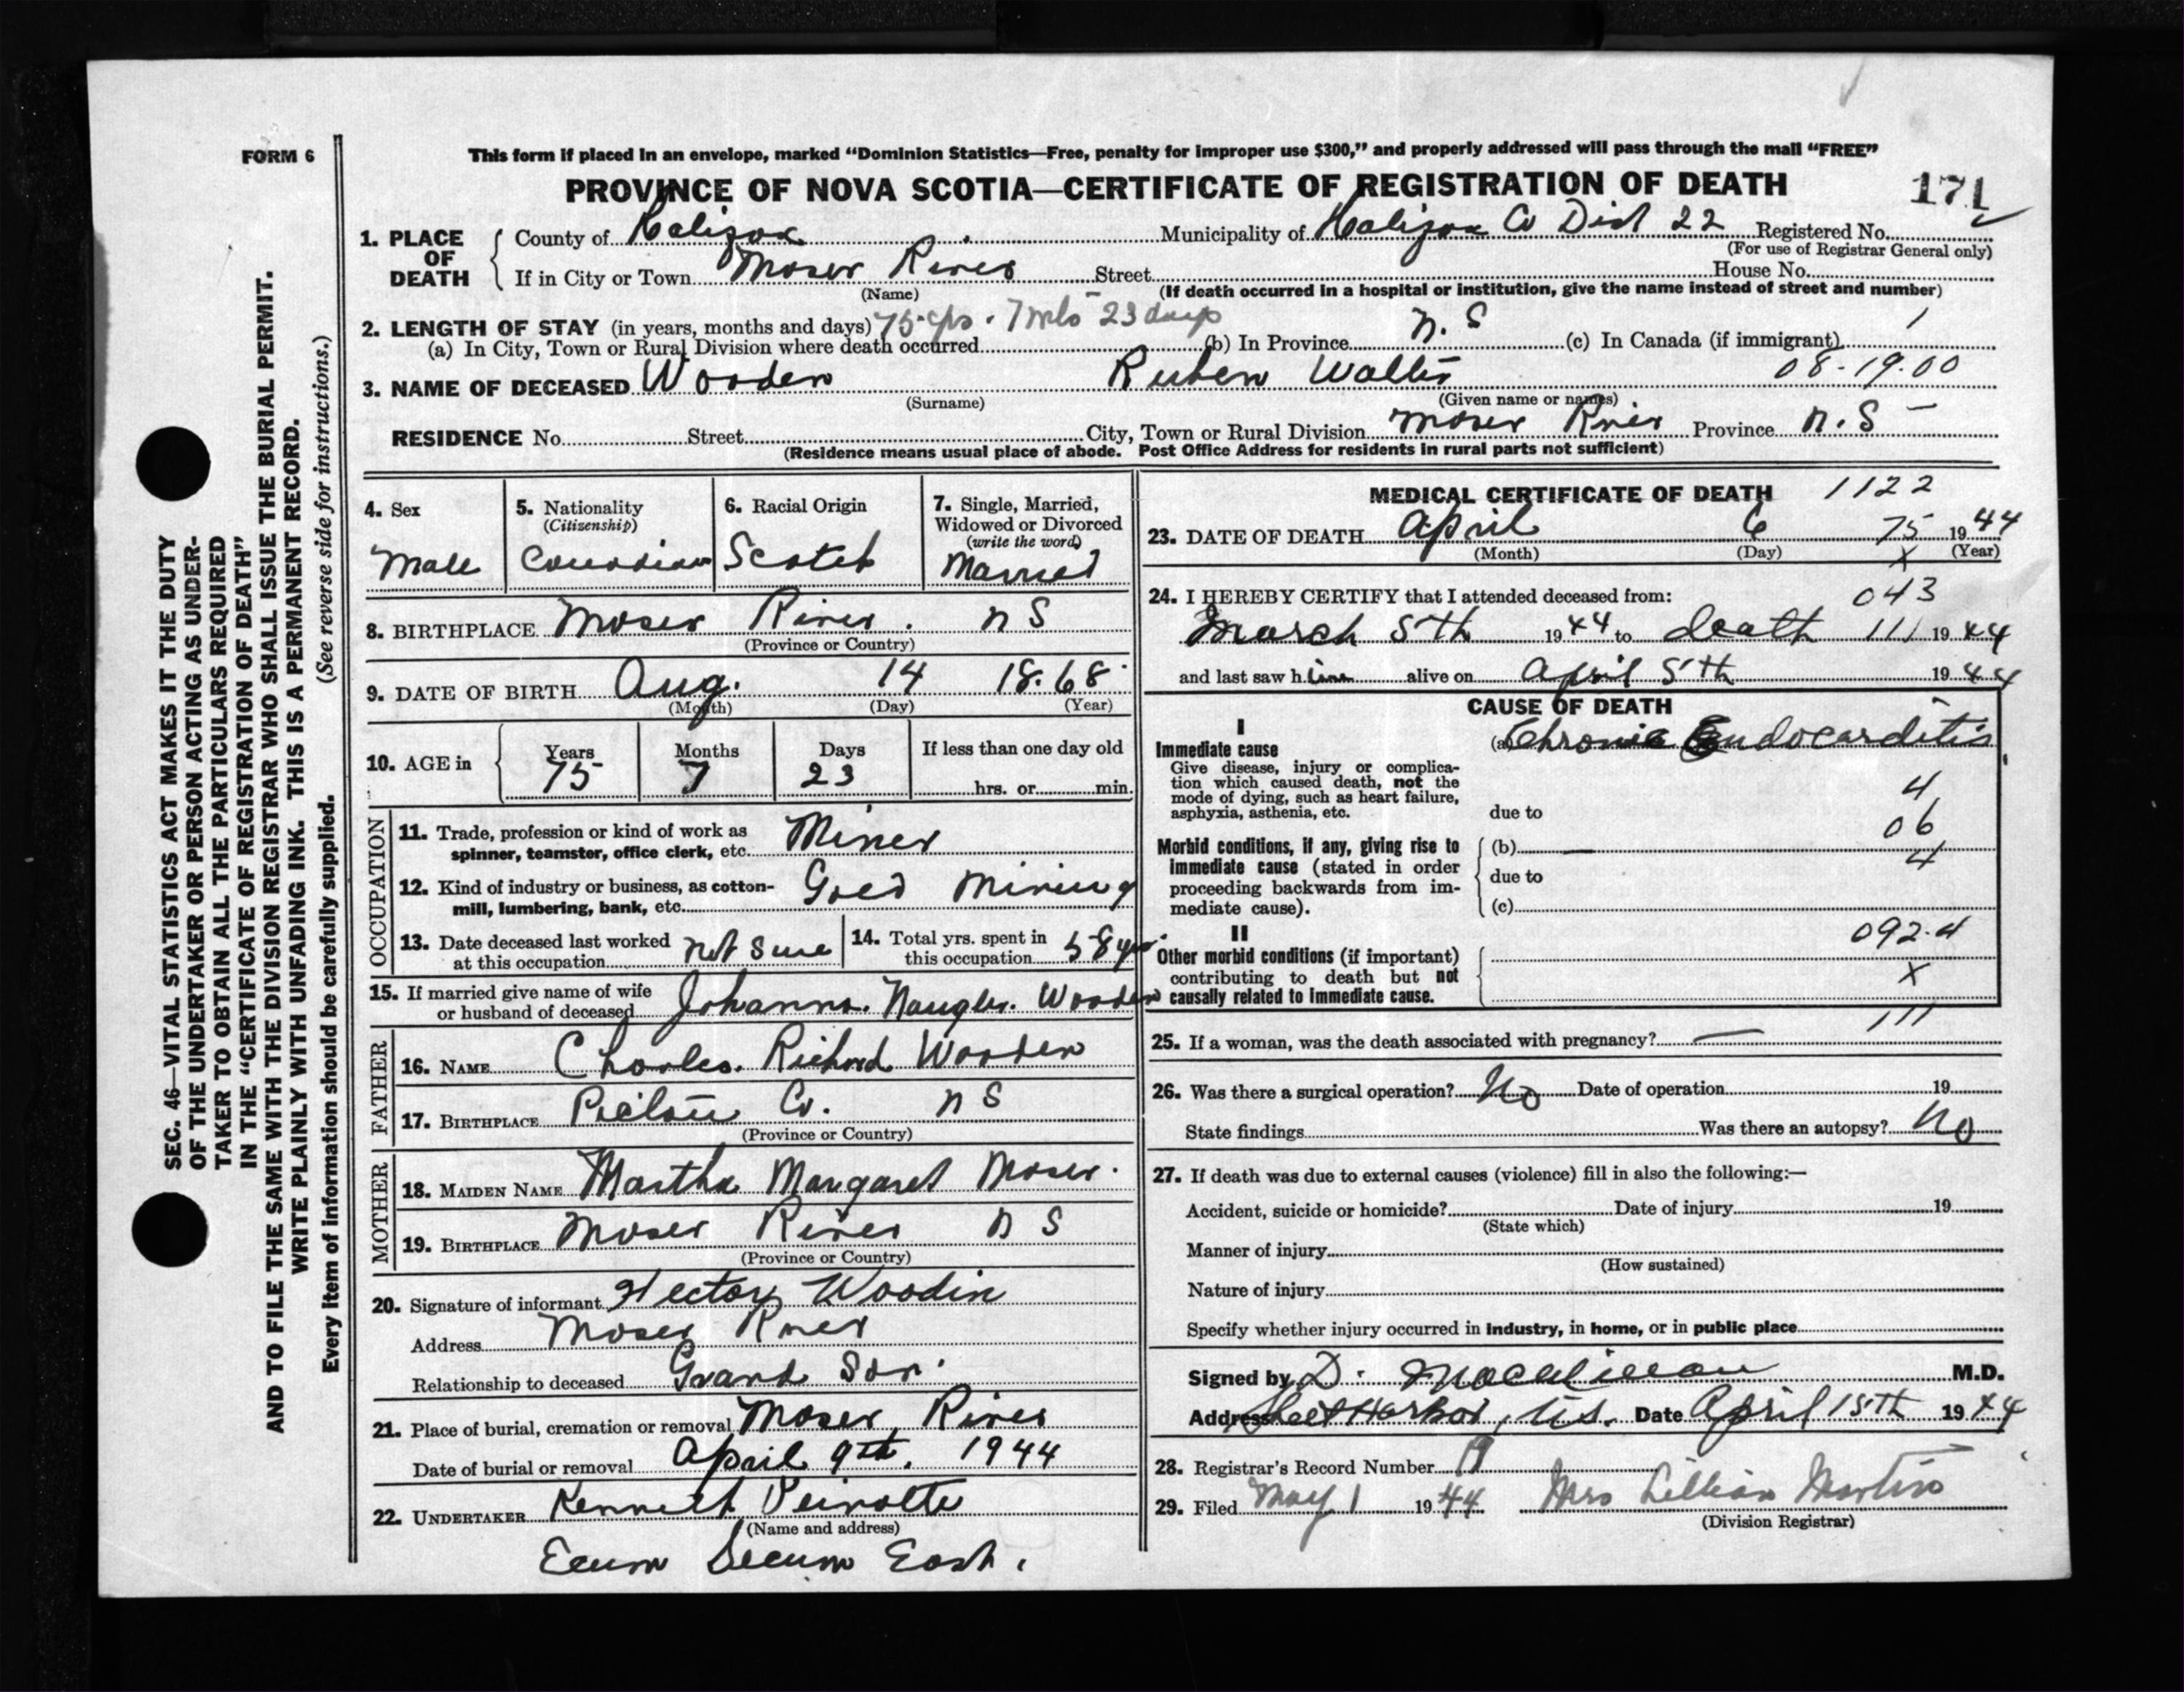 FORM 6
This form if placed in an envelope, marked "Dominion Statistics—Free, penalty for improper use $300," and properly addressed will pass through the mail "FREE"
PROVINCE OF NOVA SCOTIA—CERTIFICATE OF REGISTRATION OF DEATH
171
1. PLACE OF DEATH
County of Halifax Municipality of Halifax Co Dist 22 Registered No.
(For use of Registrar General only)
If in City or Town Moser River Street House No.
(Name) (If death occurred in a hospital or institution, give the name instead of street and number)
2. LENGTH OF STAY (in years, months and days) 75 yrs. 7 mts 23 days
(a) In City, Town or Rural Division where death occurred (b) In Province N. S (c) In Canada (if immigrant)
08-19.00
3. NAME OF DECEASED Wooden Ruben Walter
(Surname) (Given name or names)
RESIDENCE No. Street City, Town or Rural Division Moser River Province N. S
(Residence means usual place of abode. Post Office Address for residents in rural parts not sufficient)
4. Sex
Male
5. Nationality
(Citizenship)
Canadian
6. Racial Origin
Scotch
7. Single, Married,
Widowed or Divorced
(write the word)
Married
8. BIRTHPLACE Moser River. N S
(Province or Country)
9. DATE OF BIRTH Aug. 14 18.68
(Month) (Day) (Year)
10. AGE in
Years Months Days If less than one day old
75 7 23
hrs. or min.
OCCUPATION
11. Trade, profession or kind of work as
spinner, teamster, office clerk, etc. Miner
12. Kind of industry or business, as cotton-
mill, lumbering, bank, etc. Gold Mining
13. Date deceased last worked
at this occupation not sure
14. Total yrs. spent in
this occupation 58 yrs.
15. If married give name of wife
or husband of deceased Johanna. Naugler. Wooden
FATHER
16. NAME Charles. Richard Wooden
17. BIRTHPLACE Pictou Co. N S
(Province or Country)
MOTHER
18. MAIDEN NAME Martha Margaret Moser.
19. BIRTHPLACE Moser River N S
(Province or Country)
20. Signature of informant Hector Woodin
Address Moser River
Relationship to deceased Grand Son.
21. Place of burial, cremation or removal Moser River
Date of burial or removal April 9th. 1944
22. UNDERTAKER Kenneth
(Name and address)
Ecum Secum East.
MEDICAL CERTIFICATE OF DEATH 1122
23. DATE OF DEATH April 6 75 1944
(Month) (Day) X (Year)
24. I HEREBY CERTIFY that I attended deceased from: 043
March 5th 1944 to death 111 1944
and last saw him alive on April 5th 1944
CAUSE OF DEATH
I
Immediate cause (a) Chronic Endocarditis
Give disease, injury or complica-
tion which caused death, not the
mode of dying, such as heart failure,
asphyxia, asthenia, etc.
4
due to
06
Morbid conditions, if any, giving rise to
immediate cause (stated in order
proceeding backwards from im-
mediate cause).
(b)
4
due to
(c)
II
092.4
Other morbid conditions (if important)
contributing to death but not
causally related to immediate cause.
X
111
25. If a woman, was the death associated with pregnancy? —
26. Was there a surgical operation? No Date of operation 19
State findings Was there an autopsy? No
27. If death was due to external causes (violence) fill in also the following:—
Accident, suicide or homicide? Date of injury 19
(State which)
Manner of injury
(How sustained)
Nature of injury
Specify whether injury occurred in industry, in home, or in public place
Signed by D. MacMillan M.D.
Address Sheet Harbor, N.S. Date April 15th 1944
28. Registrar's Record Number 19
29. Filed May 1 1944 Mrs Lillian Martin
(Division Registrar)
SEC. 46—VITAL STATISTICS ACT MAKES IT THE DUTY
OF THE UNDERTAKER OR PERSON ACTING AS UNDER-
TAKER TO OBTAIN ALL THE PARTICULARS REQUIRED
IN THE "CERTIFICATE OF REGISTRATION OF DEATH"
AND TO FILE THE SAME WITH THE DIVISION REGISTRAR WHO SHALL ISSUE THE BURIAL PERMIT.
WRITE PLAINLY WITH UNFADING INK. THIS IS A PERMANENT RECORD.
Every item of information should be carefully supplied. (See reverse side for instructions.)